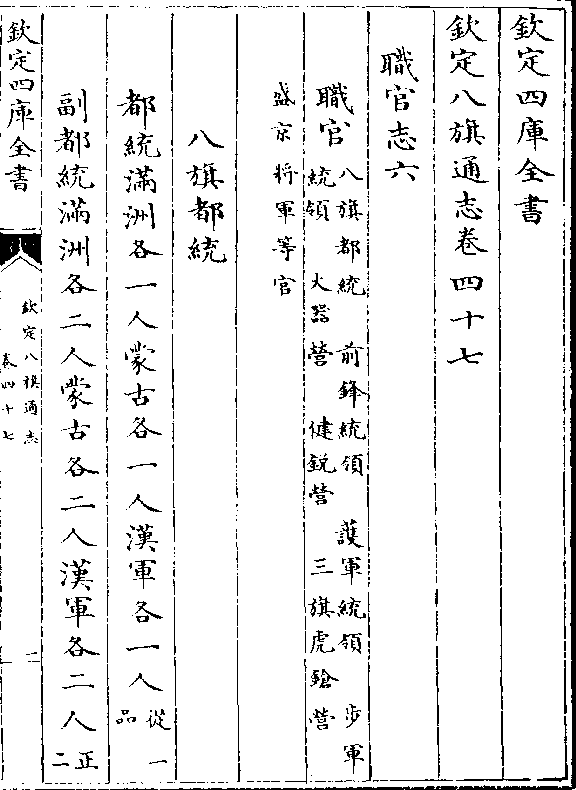 欽定四庫全書
欽定八旗通志卷四十七
職官志六
職官
八旗都統 前鋒統領 護軍統領 步軍
統領 火器營 健銳營 三旗虎鎗營
盛京將軍等官
八旗都統
都統滿洲各一人蒙古各一人漢軍各一人
從一
品
副都統滿洲各二人蒙古各二人漢軍各二人
正
二
欽定四庫全書
欽定八旗通志
卷四十七
一